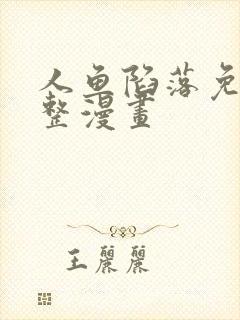 人鱼陷落免
整漫畫
王麗麗